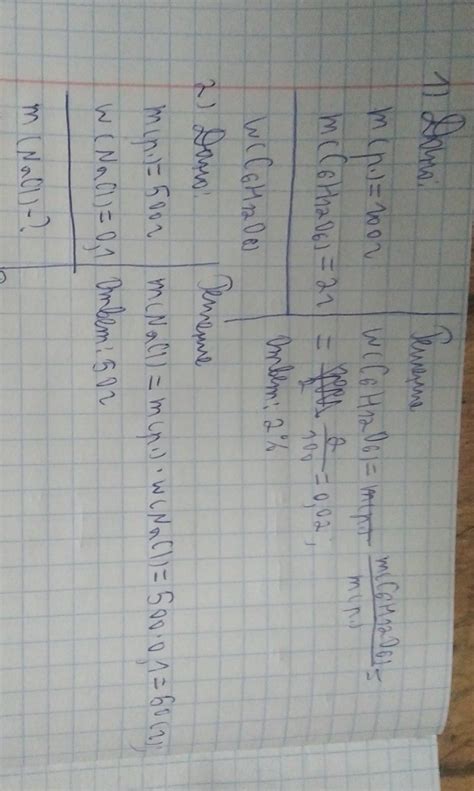 1) Дано:
m(р.)=100г
m(C6H12O6)=2г
w(C6H12O6)
Решение
w(C6H12O6)= m(C6H12O6)/m(р.) =
= 2/100 = 0,02;
Ответ: 2%
2) Дано:
m(р.)=500г
w(NaCl)=0,1
m(NaCl)-?
Решение
m(NaCl)=m(р.)·w(NaCl)=500·0,1=60(г);
Ответ: 50г